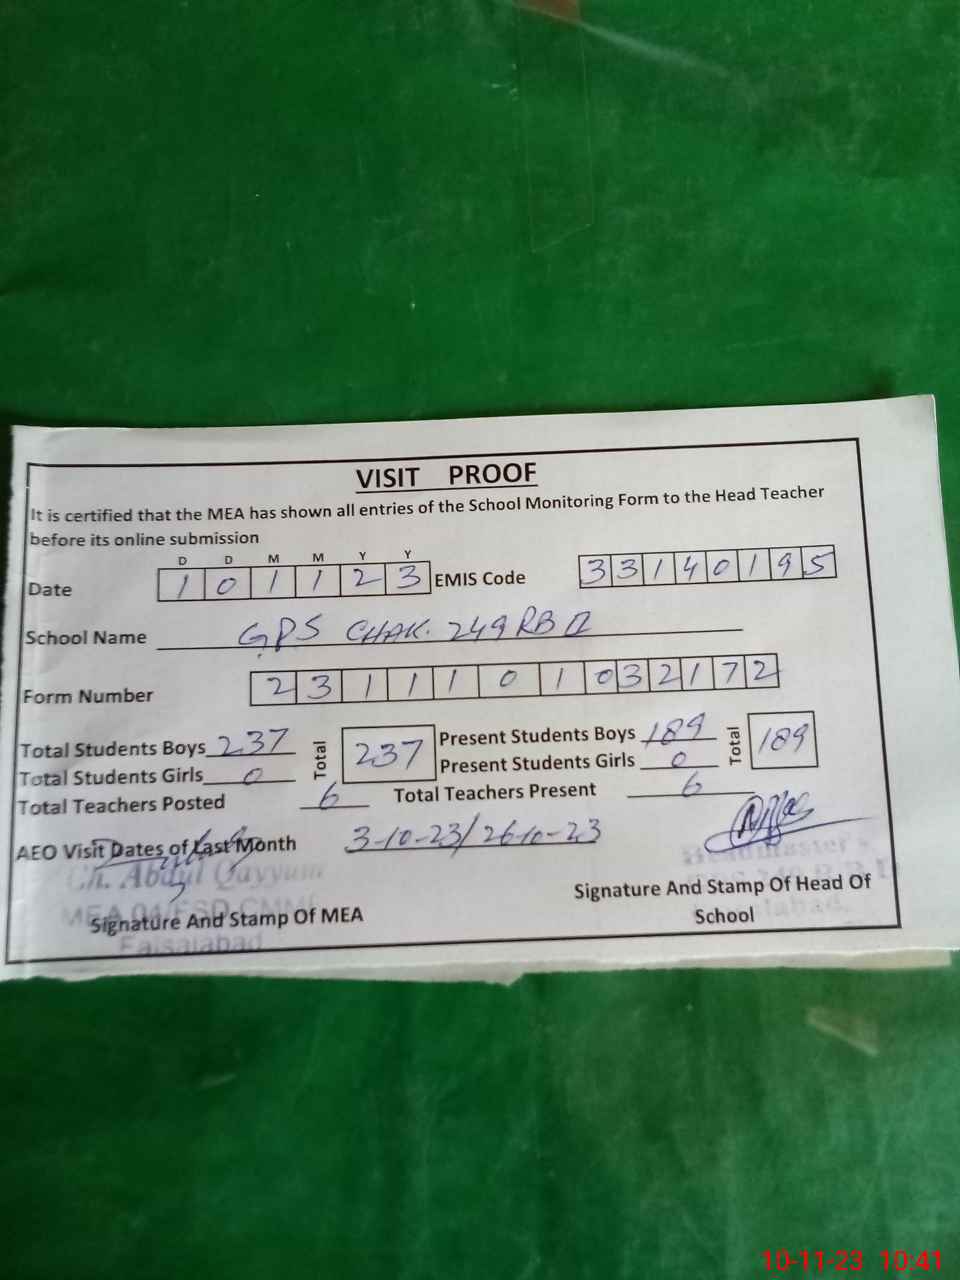 VISIT PROOF
It is certified that the MEA has shown all entries of the School Monitoring Form to the Head Teacher
before its online submission
D D M M Y Y
Date 1 0 1 1 2 3 EMIS Code 3 3 1 4 0 1 9 5
School Name GPS CHAK. 249 RB II
Form Number 2 3 1 1 1 0 1 0 3 2 1 7 2
Total Students Boys 237 Total 237 Present Students Boys 189 Total 189
Total Students Girls 0 Present Students Girls 0
Total Teachers Posted 6 Total Teachers Present 6
AEO Visit Dates of Last Month 3-10-23/26-10-23
Ch. Abdul Qayyum
Headmaster
MEA
Signature And Stamp Of MEA
Faisalabad
Signature And Stamp Of Head Of
School
10-11-23 10:41